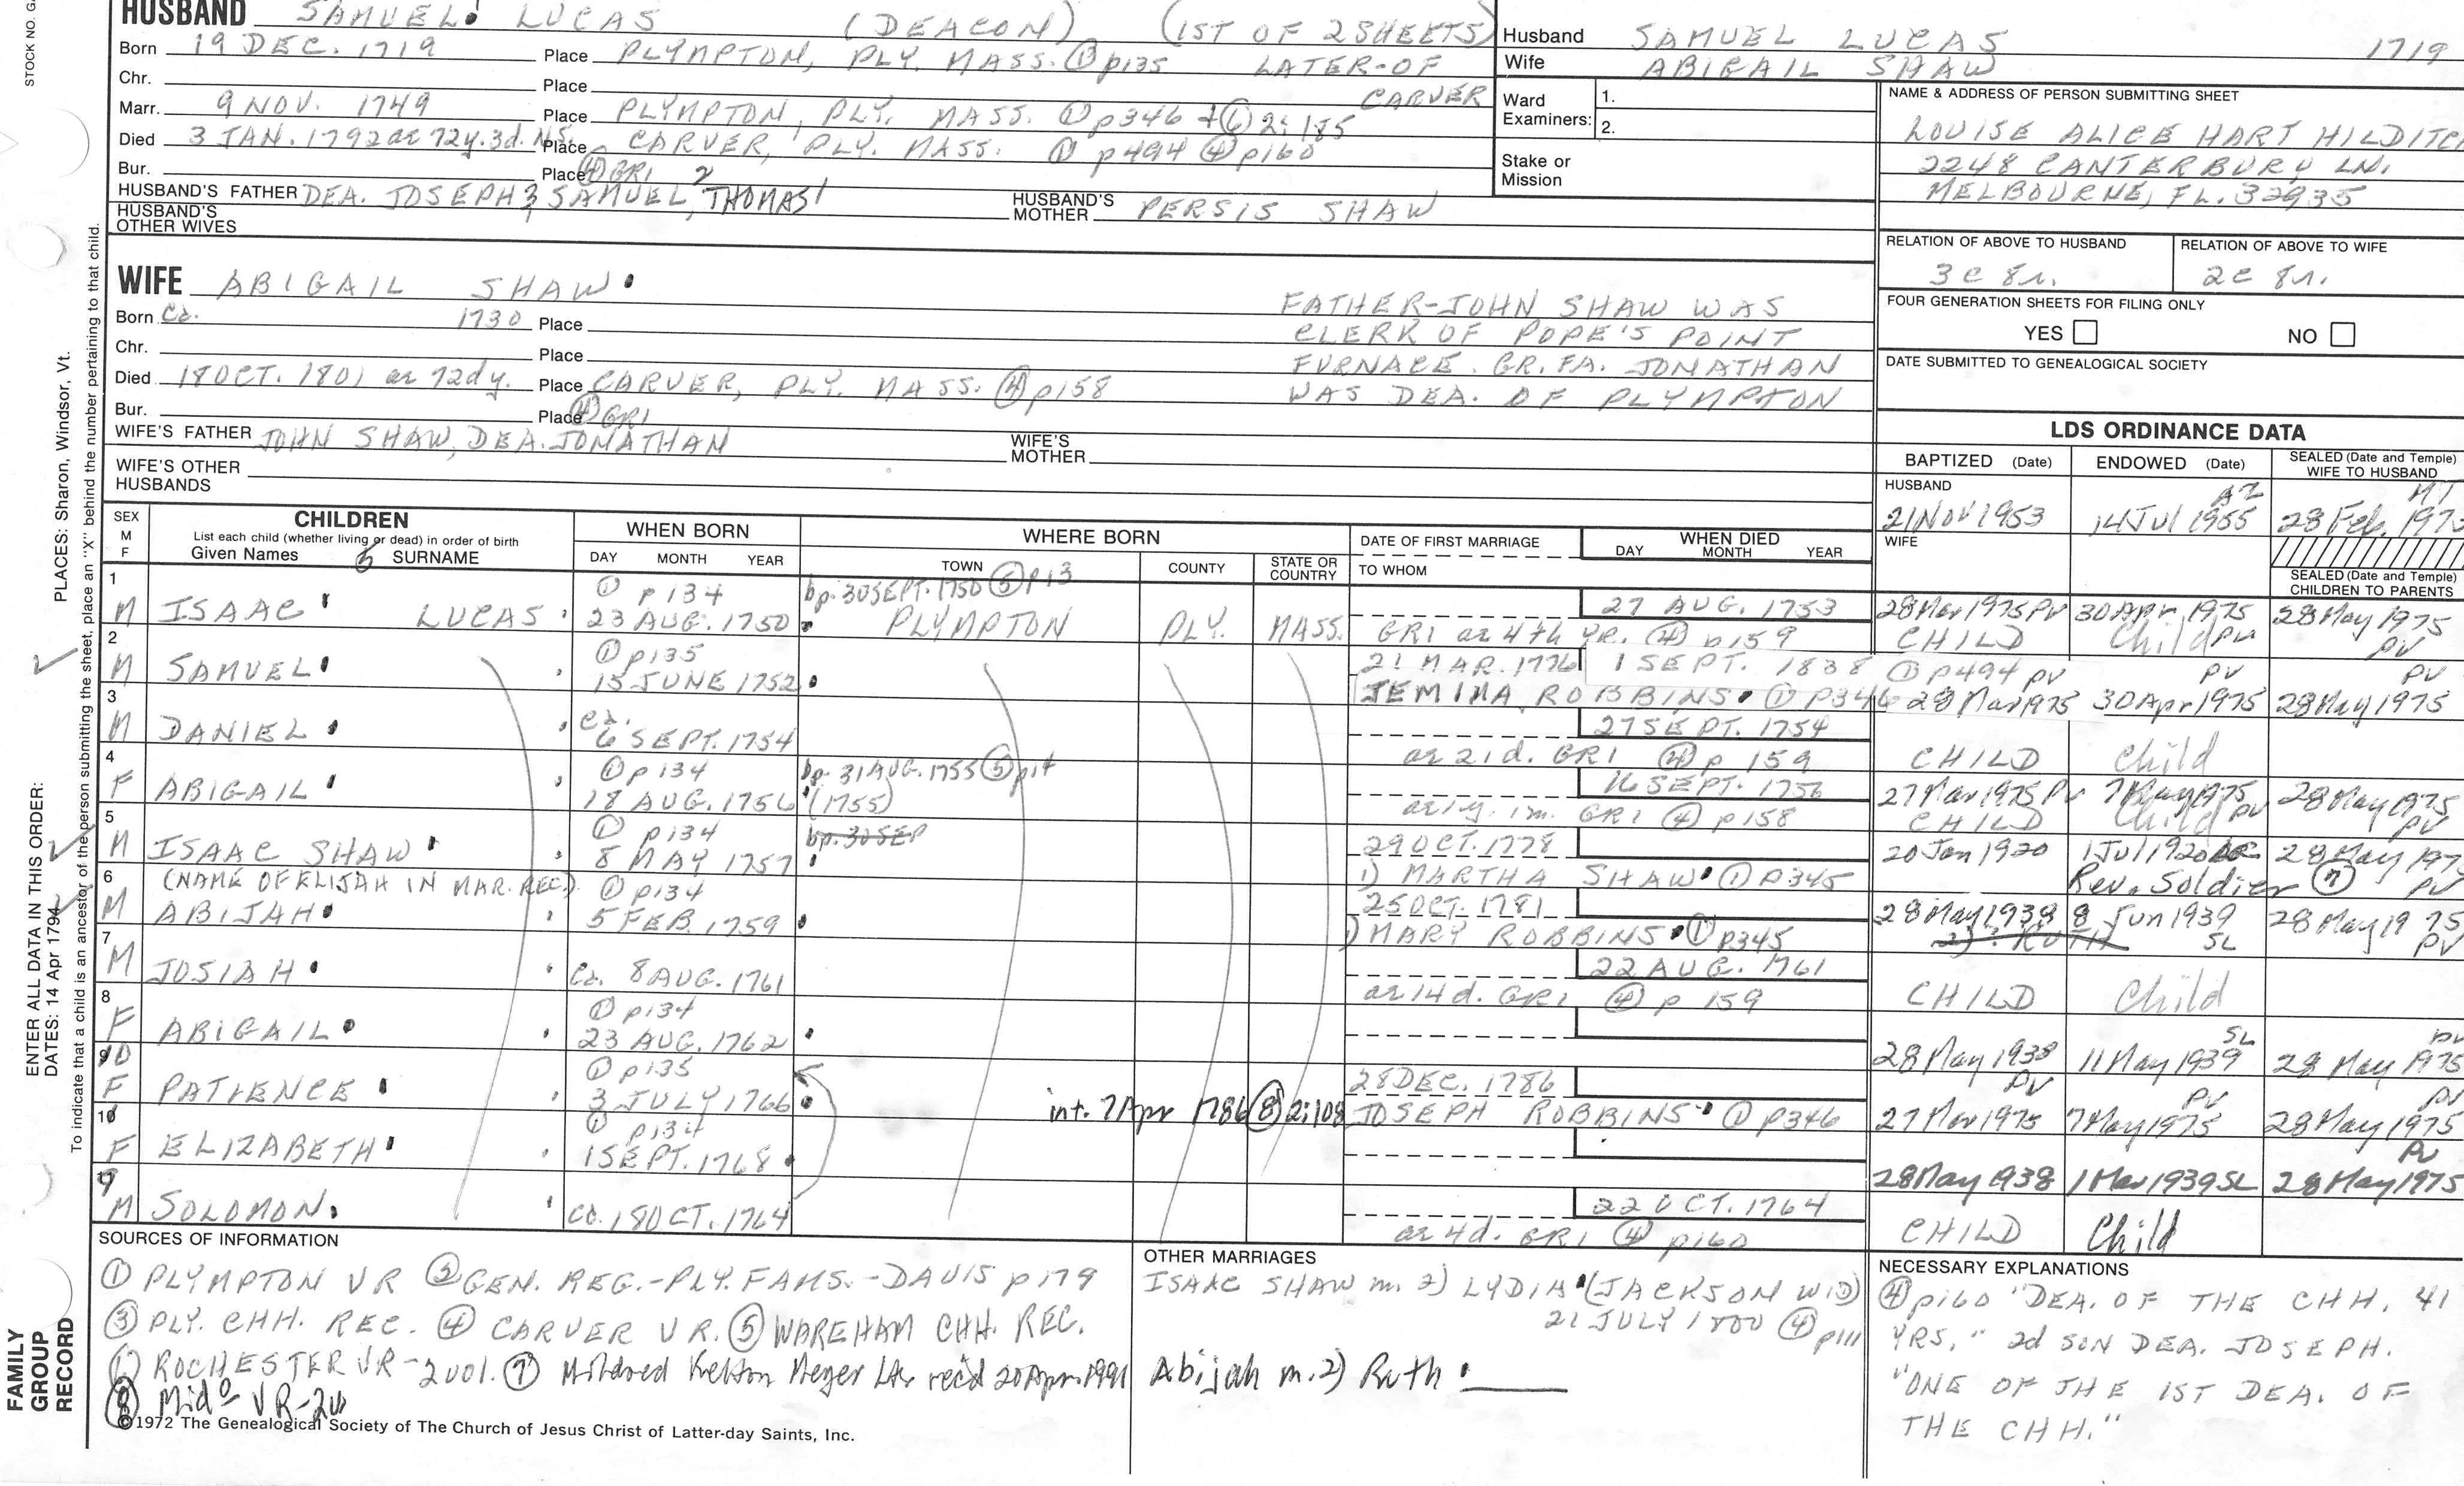 STOCK NO.
HUSBAND SAMUEL LUCAS (DEACON) (1ST OF 2 SHEETS)
Born 19 DEC. 1719 Place PLYMPTON, PLY. MASS. ① p135 LATER-OF
Chr. Place CARVER
Marr. 9 NOV. 1749 Place PLYMPTON, PLY. MASS. ① p346 + ⑥ 2:185
Died 3 JAN. 1792 ae 72y. 3d. N.S. Place CARVER, PLY. MASS. ① p494 ④ p160
Bur. Place ④ GR1
HUSBAND'S FATHER DEA. JOSEPH3, SAMUEL2, THOMAS1 HUSBAND'S MOTHER PERSIS SHAW
HUSBAND'S OTHER WIVES
WIFE ABIGAIL SHAW
Born Ca. 1730 Place
Chr. Place
Died 18 OCT. 1801 ae 72d y. Place CARVER, PLY. MASS. ④ p158
Bur. Place ④ GR1
WIFE'S FATHER JOHN SHAW, DEA. JONATHAN WIFE'S MOTHER
WIFE'S OTHER HUSBANDS
FATHER-JOHN SHAW WAS
CLERK OF POPE'S POINT
FURNACE. GR. FA. JONATHAN
WAS DEA. OF PLYMPTON
Husband SAMUEL LUCAS 1719
Wife ABIGAIL SHAW
Ward Examiners: 1.
2.
Stake or Mission
NAME & ADDRESS OF PERSON SUBMITTING SHEET
LOUISE ALICE HART HILDITCH
2248 CANTERBURY LN.
MELBOURNE, FL. 32935
RELATION OF ABOVE TO HUSBAND RELATION OF ABOVE TO WIFE
3c 8r. 2c 8r.
FOUR GENERATION SHEETS FOR FILING ONLY
YES NO
DATE SUBMITTED TO GENEALOGICAL SOCIETY
LDS ORDINANCE DATA
BAPTIZED (Date) ENDOWED (Date) SEALED (Date and Temple) WIFE TO HUSBAND
HUSBAND AZ
21 Nov 1953 14 Jul 1955 28 Feb.
WIFE
SEALED (Date and Temple) CHILDREN TO PARENTS
SEX M F CHILDREN WHEN BORN WHERE BORN DATE OF FIRST MARRIAGE WHEN DIED
List each child (whether living or dead) in order of birth
Given Names SURNAME DAY MONTH YEAR TOWN COUNTY STATE OR COUNTRY TO WHOM DAY MONTH YEAR
1 ① p134 bp. 30 SEPT. 1750 ⑤ p13
M ISAAC LUCAS 23 AUG. 1750 PLYMPTON PLY. MASS. 27 AUG. 1753 28 Mar 1975 PV 30 Apr 1975 28 May 1975
GR1 ae 4th YR. ④ p159 CHILD Child PV PV
2 ① p135 21 MAR. 1776 1 SEPT. 1838 ① p494 PV PV PV
M SAMUEL 15 JUNE 1752 JEMIMA ROBBINS ① p346 28 Mar 1975 30 Apr 1975 28 May 1975
3 ca. 27 SEPT. 1754
M DANIEL 6 SEPT. 1754 ae 21d. GR1 ④ p 159 CHILD Child
4 ① p134 bp. 31 AUG. 1755 ⑤ p14 16 SEPT. 1756
F ABIGAIL 18 AUG. 1756 (1755) ae 1y. 1m. GR1 ④ p158 27 Mar 1975 PV 7 May 1975 PV 28 May 1975 PV
CHILD Child
5 ① p134 bp. 30 SEP 29 OCT. 1778
M ISAAC SHAW 8 MAY 1757 1) MARTHA SHAW ① p345 20 Jan 1920 1 Jul 1920 28 May 197
Rev. Soldier ⑦ PV
6 (NAME OF ELIJAH IN MAR. REC.) ① p134 25 OCT. 1781
M ABIJAH 5 FEB. 1759 1) MARY ROBBINS ① p345 28 May 1938 8 Jun 1939 SL 28 May 1975 PV
7 22 AUG. 1761
M JOSIAH ca. 8 AUG. 1761 ae 14d. GR1 ④ p 159 CHILD Child
8 ① p134
F ABIGAIL 23 AUG. 1762 28 May 1938 11 May 1939 SL 28 May 1975 PV
10 ① p135 28 DEC. 1786
F PATIENCE 3 JULY 1766 int. 7 Apr 1786 ⑧ 2:108 JOSEPH ROBBINS ① p346 27 Mar 1975 PV 7 May 1975 PV 28 May 1975 PV
① p134
F ELIZABETH 1 SEPT. 1768 28 May 1938 1 Mar 1939 SL 28 May 1975 PV
9
M SOLOMON ca. 18 OCT. 1764 22 OCT. 1764
ae 4d. GR1 ④ p160 CHILD Child
SOURCES OF INFORMATION
① PLYMPTON VR ② GEN. REG.-PLY. FAMS.-DAVIS p179
③ PLY. CHH. REC. ④ CARVER VR. ⑤ WAREHAM CHH. REC.
ROCHESTER VR-2 vol. ⑦ Mildred Meyer Ltr rec'd 20 Apr. 1991
⑧ Mido VR-2v
©1972 The Genealogical Society of The Church of Jesus Christ of Latter-day Saints, Inc.
OTHER MARRIAGES
ISAAC SHAW m. 2) LYDIA (JACKSON WID)
21 JULY 1800 ④ p111
Abijah m. 2) Ruth
NECESSARY EXPLANATIONS
④ p160 "DEA. OF THE CHH. 41
YRS," 2d SON DEA. JOSEPH.
"ONE OF THE 1ST DEA. OF
THE CHH."
PLACES: Sharon, Windsor, Vt.
ENTER ALL DATA IN THIS ORDER:
DATES: 14 Apr 1794
To indicate that a child is an ancestor of the person submitting the sheet, place an "X" behind the number pertaining to that child.
FAMILY
GROUP
RECORD